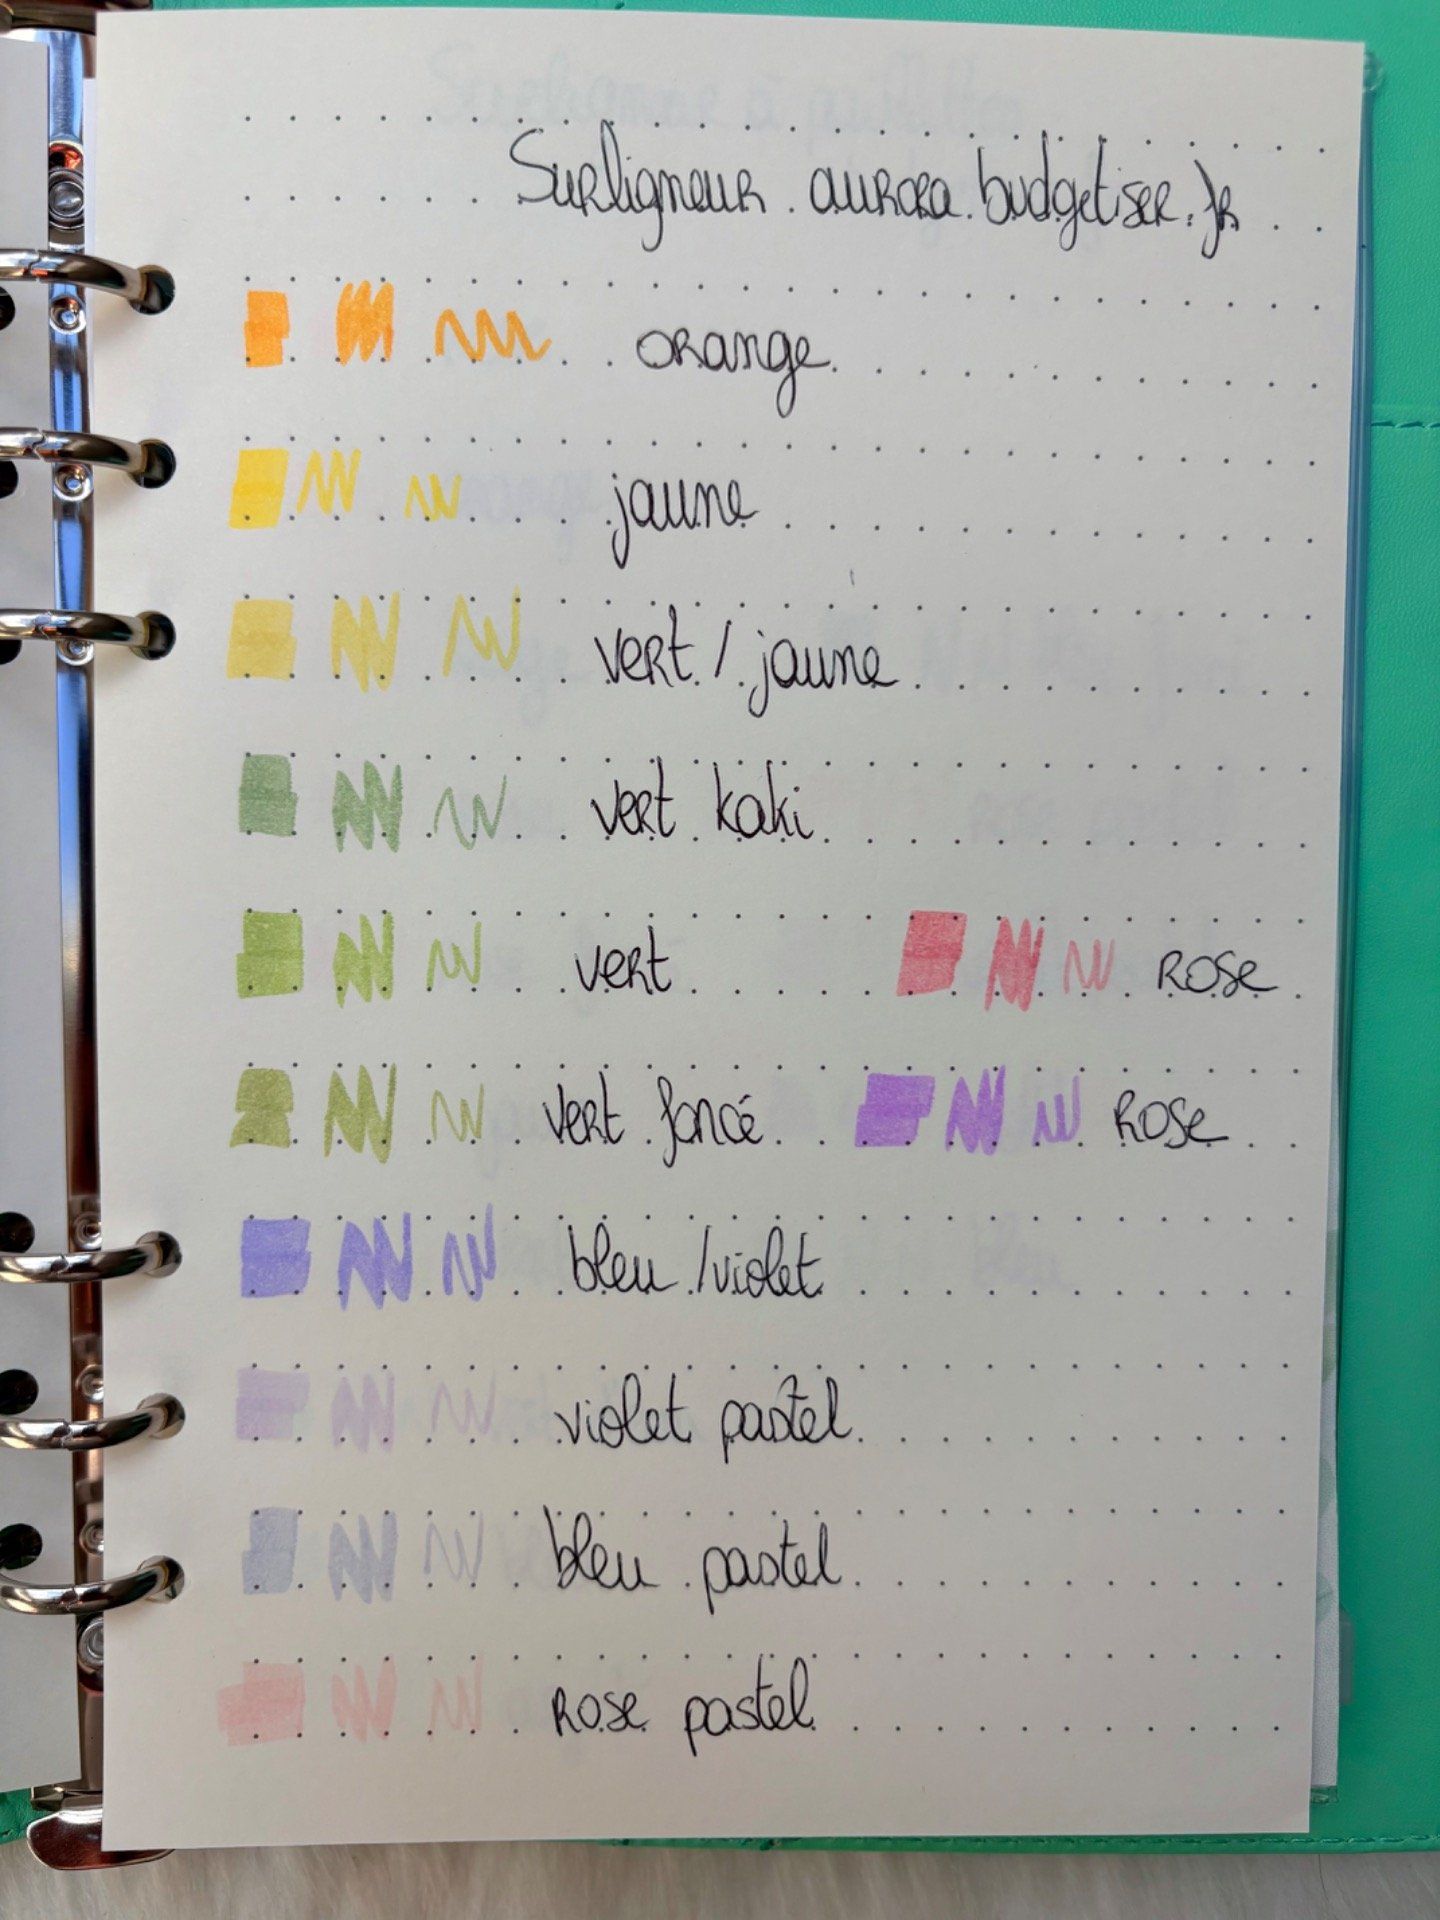 Surligneur aurora.budgetiser.fr
orange
jaune
vert / jaune
vert kaki
vert rose
vert foncé rose
bleu / violet
violet pastel
bleu pastel
rose pastel